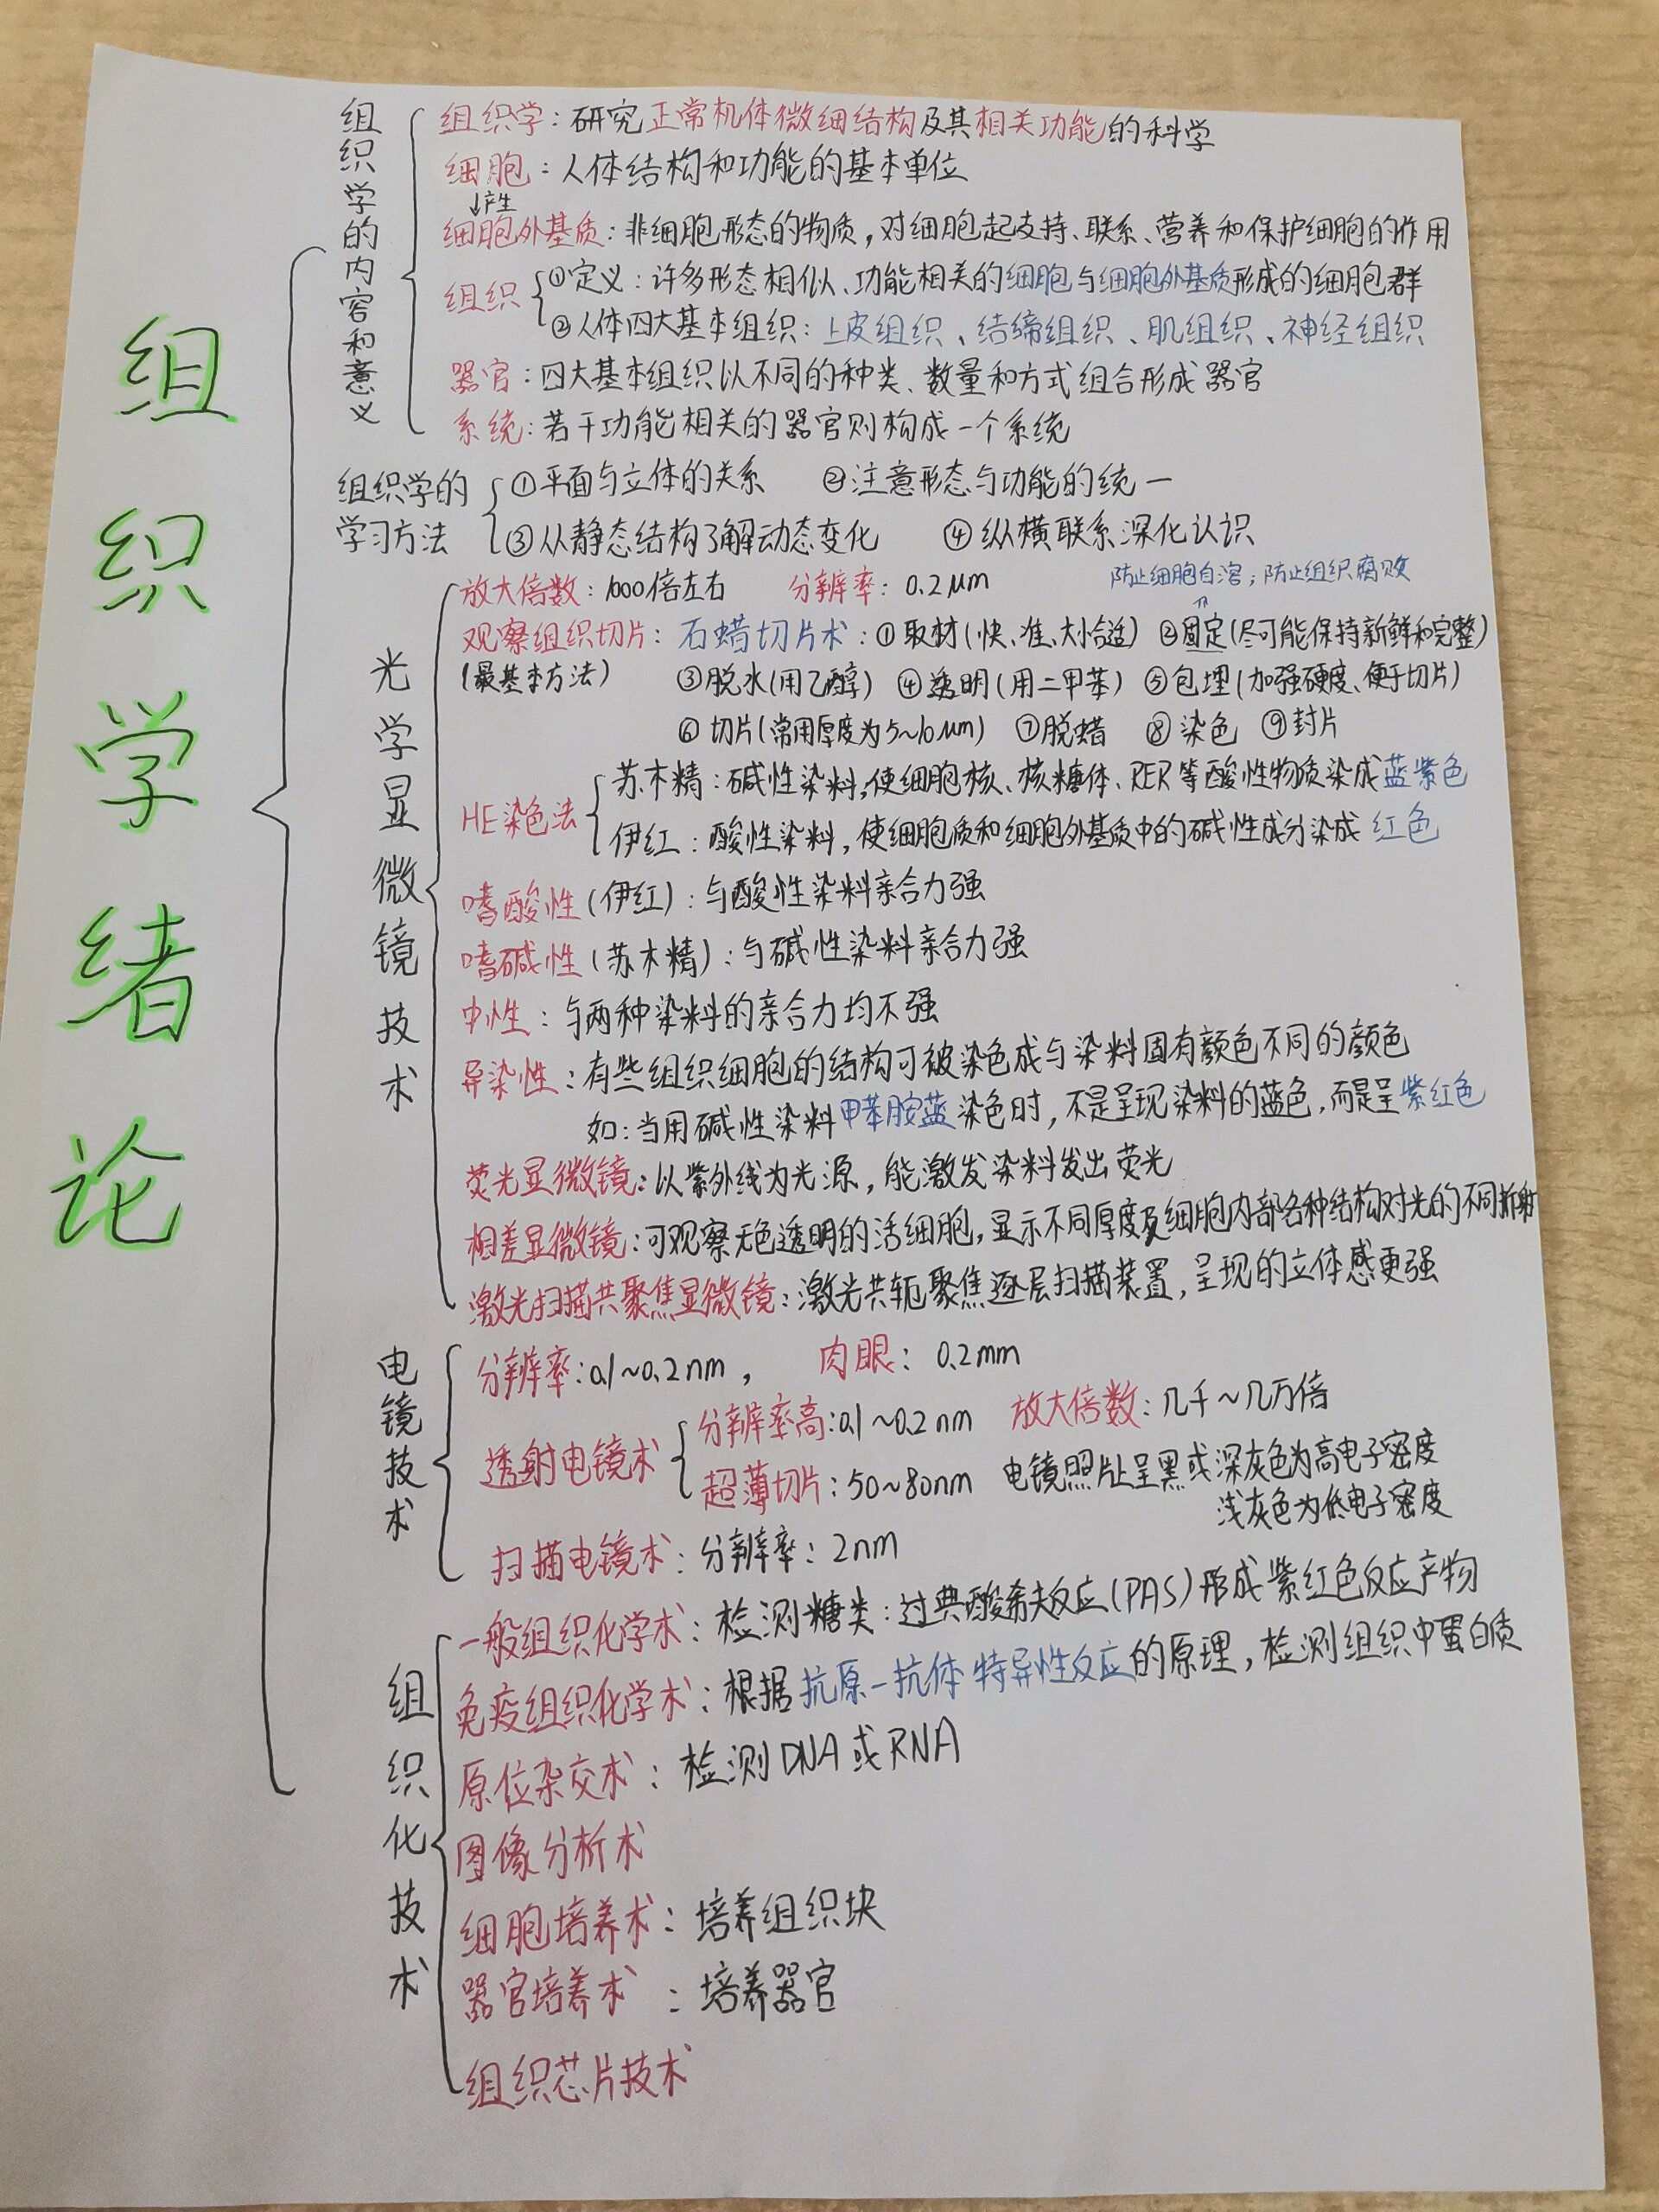 组织学绪论
组织学的内容和意义
组织学：研究正常机体微细结构及其相关功能的科学
细胞：人体结构和功能的基本单位
↓产生
细胞外基质：非细胞形态的物质，对细胞起支持、联系、营养和保护细胞的作用
组织
①定义：许多形态相似、功能相关的细胞与细胞外基质形成的细胞群
②人体四大基本组织：上皮组织、结缔组织、肌组织、神经组织
器官：四大基本组织以不同的种类、数量和方式组合形成器官
系统：若干功能相关的器官则构成一个系统
组织学的
学习方法
①平面与立体的关系 ②注意形态与功能的统一
③从静态结构了解动态变化 ④纵横联系深化认识
光学显微镜技术
放大倍数：1000倍左右 分辨率：0.2μm
防止细胞自溶；防止组织腐败
观察组织切片：石蜡切片术：①取材(快、准、大小合适) ②固定(尽可能保持新鲜和完整)
(最基本方法) ③脱水(用乙醇) ④透明(用二甲苯) ⑤包埋(加强硬度、便于切片)
⑥切片(常用厚度为5~10μm) ⑦脱蜡 ⑧染色 ⑨封片
HE染色法
苏木精：碱性染料，使细胞核、核糖体、RER等酸性物质染成蓝紫色
伊红：酸性染料，使细胞质和细胞外基质中的碱性成分染成红色
嗜酸性(伊红)：与酸性染料亲合力强
嗜碱性(苏木精)：与碱性染料亲合力强
中性：与两种染料的亲合力均不强
异染性：有些组织细胞的结构可被染色成与染料固有颜色不同的颜色
如：当用碱性染料甲苯胺蓝染色时，不是呈现染料的蓝色，而是呈紫红色
荧光显微镜：以紫外线为光源，能激发染料发出荧光
相差显微镜：可观察无色透明的活细胞，显示不同厚度及细胞内部各种结构对光的不同折射
激光扫描共聚焦显微镜：激光共轭聚焦逐层扫描装置，呈现的立体感更强
电镜技术
分辨率：0.1~0.2nm， 肉眼：0.2mm
透射电镜术
分辨率高：0.1~0.2nm 放大倍数：几千~几万倍
超薄切片：50~80nm 电镜照片上呈黑或深灰色为高电子密度
浅灰色为低电子密度
扫描电镜术：分辨率：2nm
组织化技术
一般组织化学术：检测糖类：过典酸希夫反应(PAS)形成紫红色反应产物
免疫组织化学术：根据抗原-抗体特异性反应的原理，检测组织中蛋白质
原位杂交术：检测DNA或RNA
图像分析术
细胞培养术：培养组织块
器官培养术：培养器官
组织芯片技术